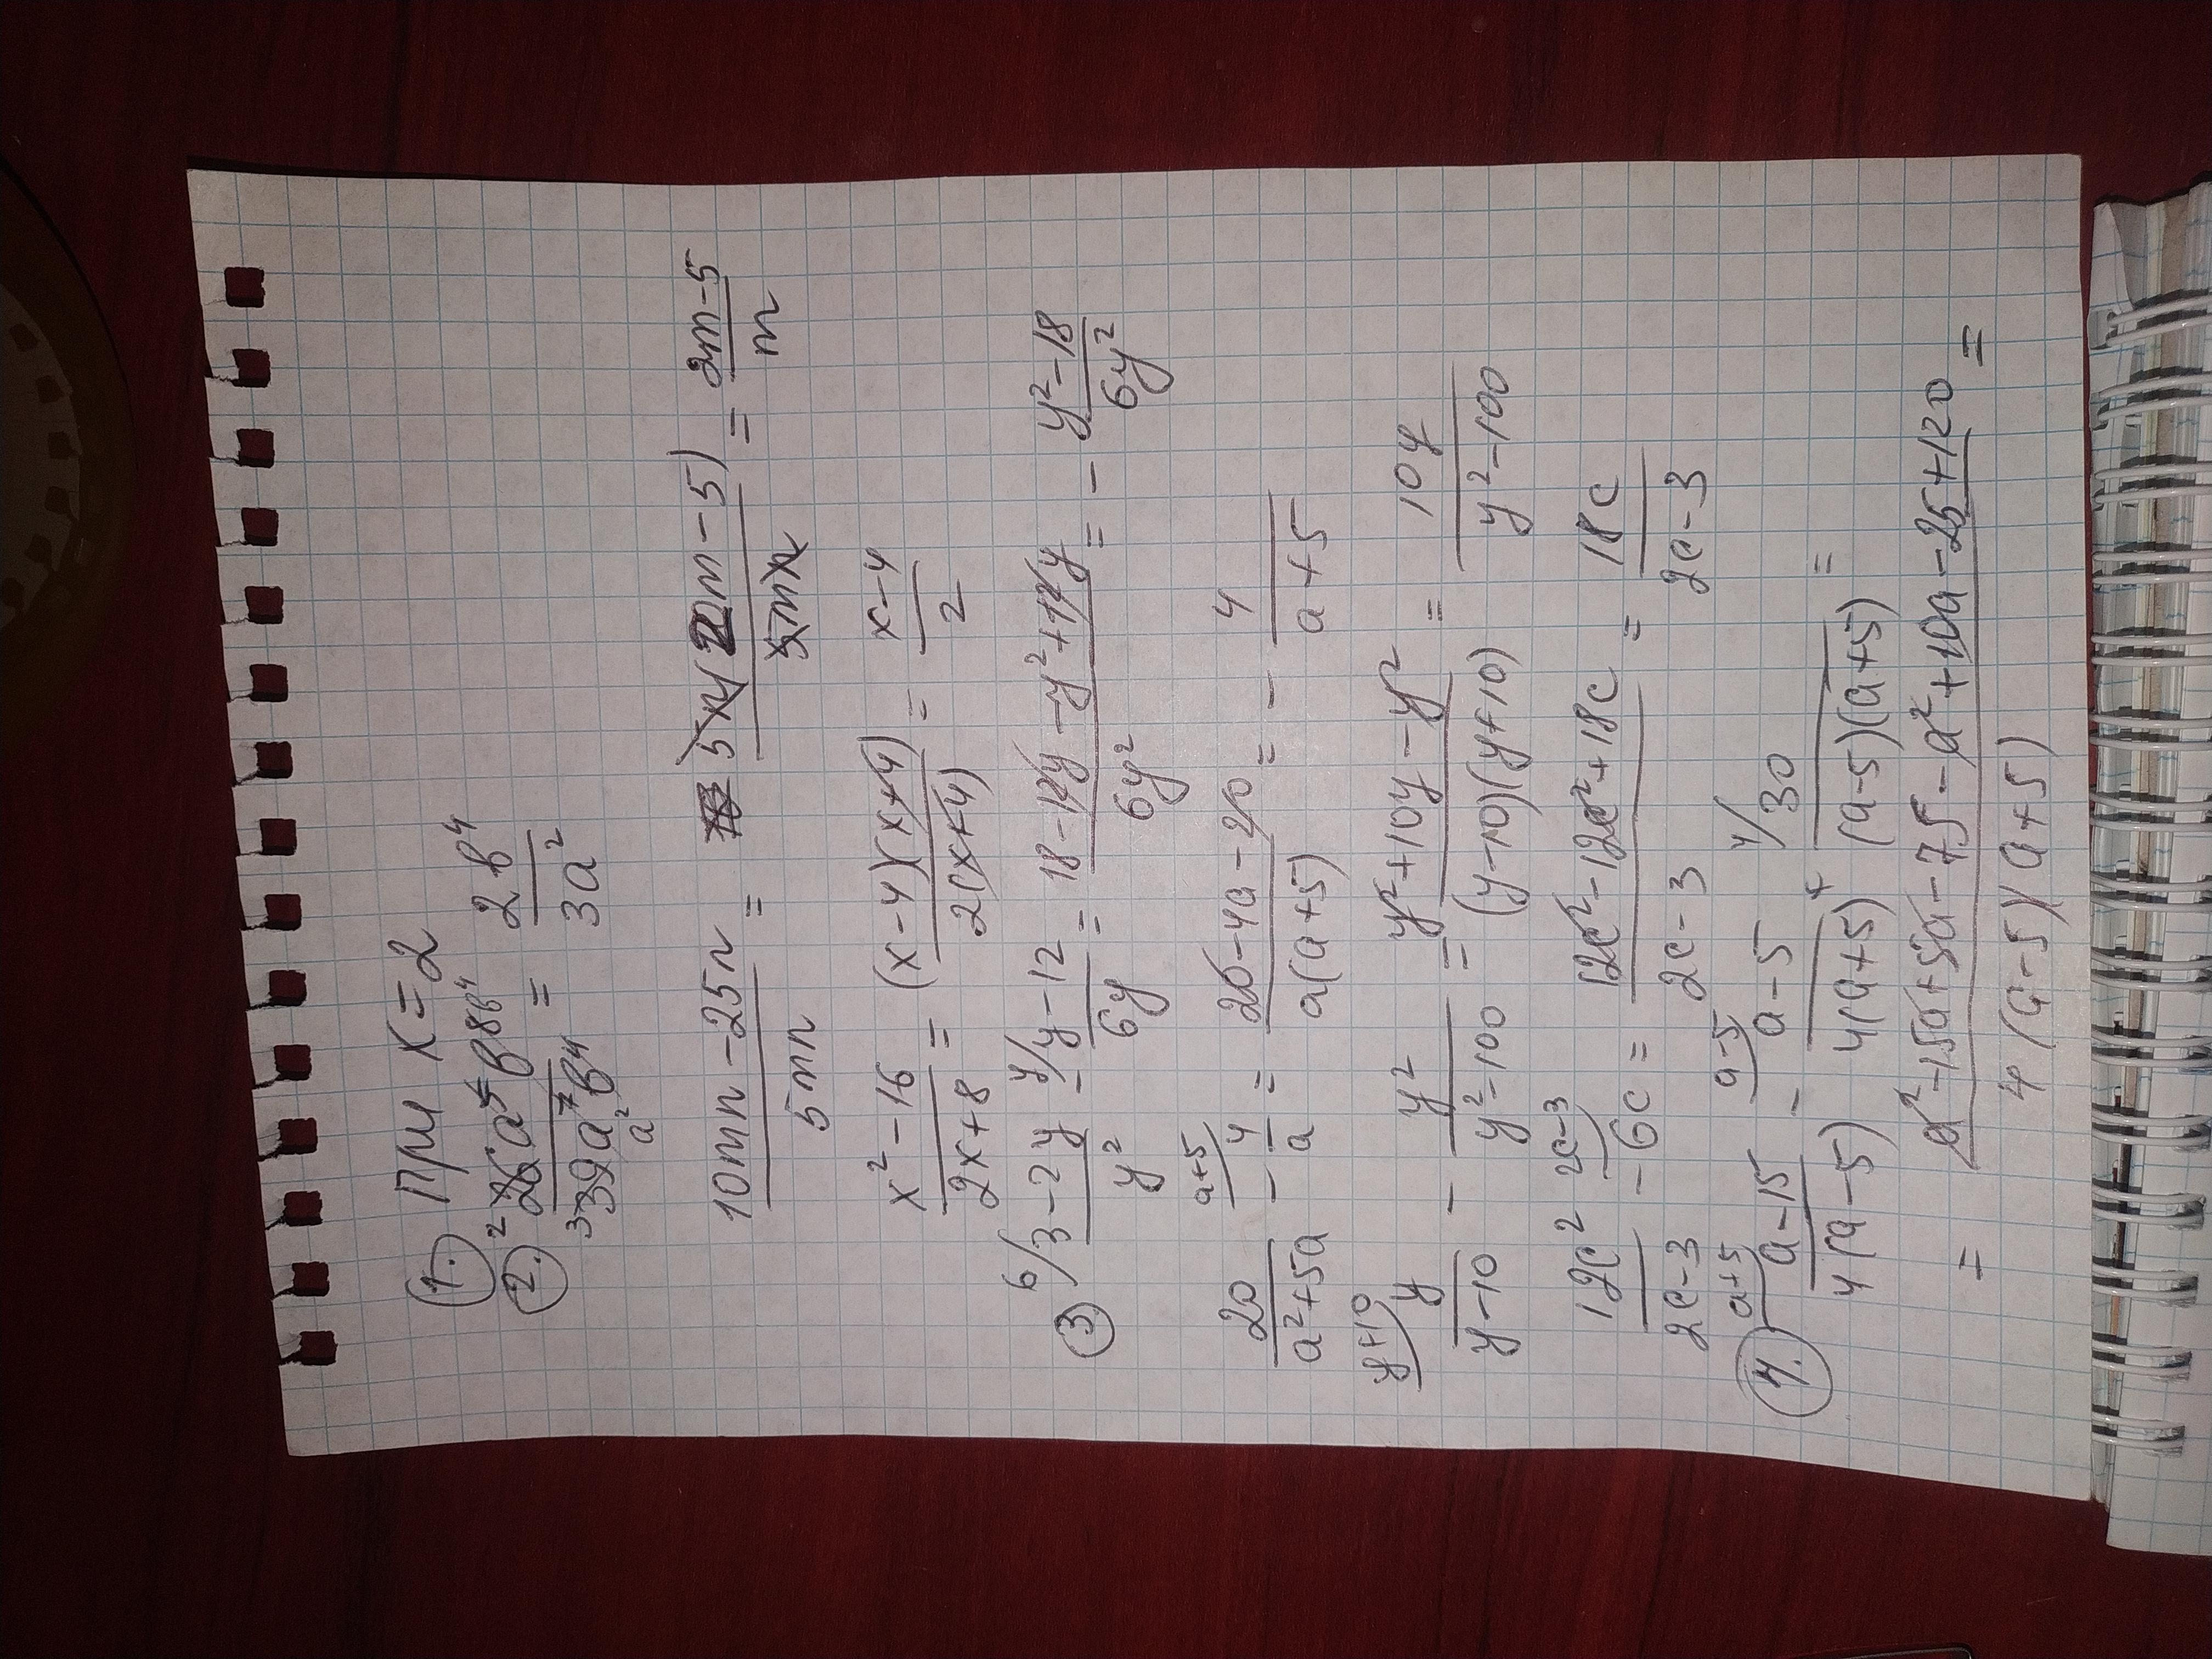 1. При x=2
2. (26a⁵b⁸)/(39a⁷b⁴) = (2b⁴)/(3a²)
(10mn-25n)/(5mn) = (5n(2m-5))/(5mn) = (2m-5)/m
(x²-16)/(2x+8) = ((x-4)(x+4))/(2(x+4)) = (x-4)/2
3 6/ (3-2y)/y² - y/ (y-12)/(6y) = (18-12y-y²+12y)/(6y²) = -(y²-18)/(6y²)
20/(a²+5a) - a+5/ 4/a = (20-4a-20)/(a(a+5)) = - 4/(a+5)
y+10/ y/(y-10) - y²/(y²-100) = (y²+10y-y²)/((y-10)(y+10)) = 10y/(y²-100)
12c²/(2c-3) - 2c-3/ 6c = (12c²-12c²+18c)/(2c-3) = 18c/(2c-3)
4. a+5/ (a-15)/(4(a-5)) - a-5/ (a-5)/(4(a+5)) + 4/ 30/((a-5)(a+5)) =
= (a²-15a+5a-75-a²+10a-25+120)/(4(a-5)(a+5)) =